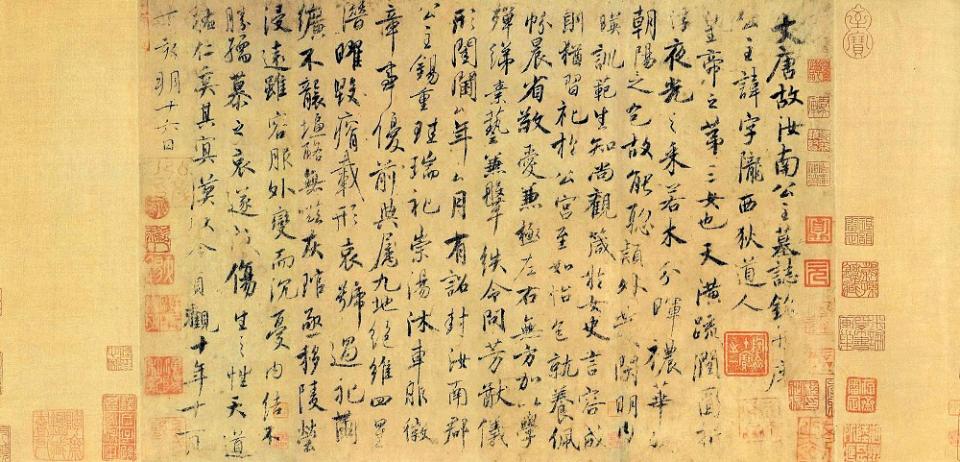 大唐故汝南公主墓誌銘并序
公主諱字隴西狄道人
皇帝之第三女也天潢疏潤圓折
浮夜光之采若木分暉穠華
朝陽之色故能聰穎外發閑明內
暎訓範生知尚觀箴於女史言容成
則猶習礼於公宮至如怡色就養佩
帉晨省敬愛兼極左右無方加以學
殫綈素藝兼鞶紩令問芳猷儀
形閨閫厶年厶月有詔封汝南郡
公主錫重珪瑞礼崇湯沐車服徽
章事優前典屬九地絕維四星
潛曜毀瘠載形哀號過礼繭
纊不襲塩酪無嗞灰琯亟移陵塋
浸遠雖容服外變而沉憂內結不
勝孺慕之哀遂成傷生之性天道
祐仁奚其冥漠以今貞觀十年十一月
丁亥朔明十六日